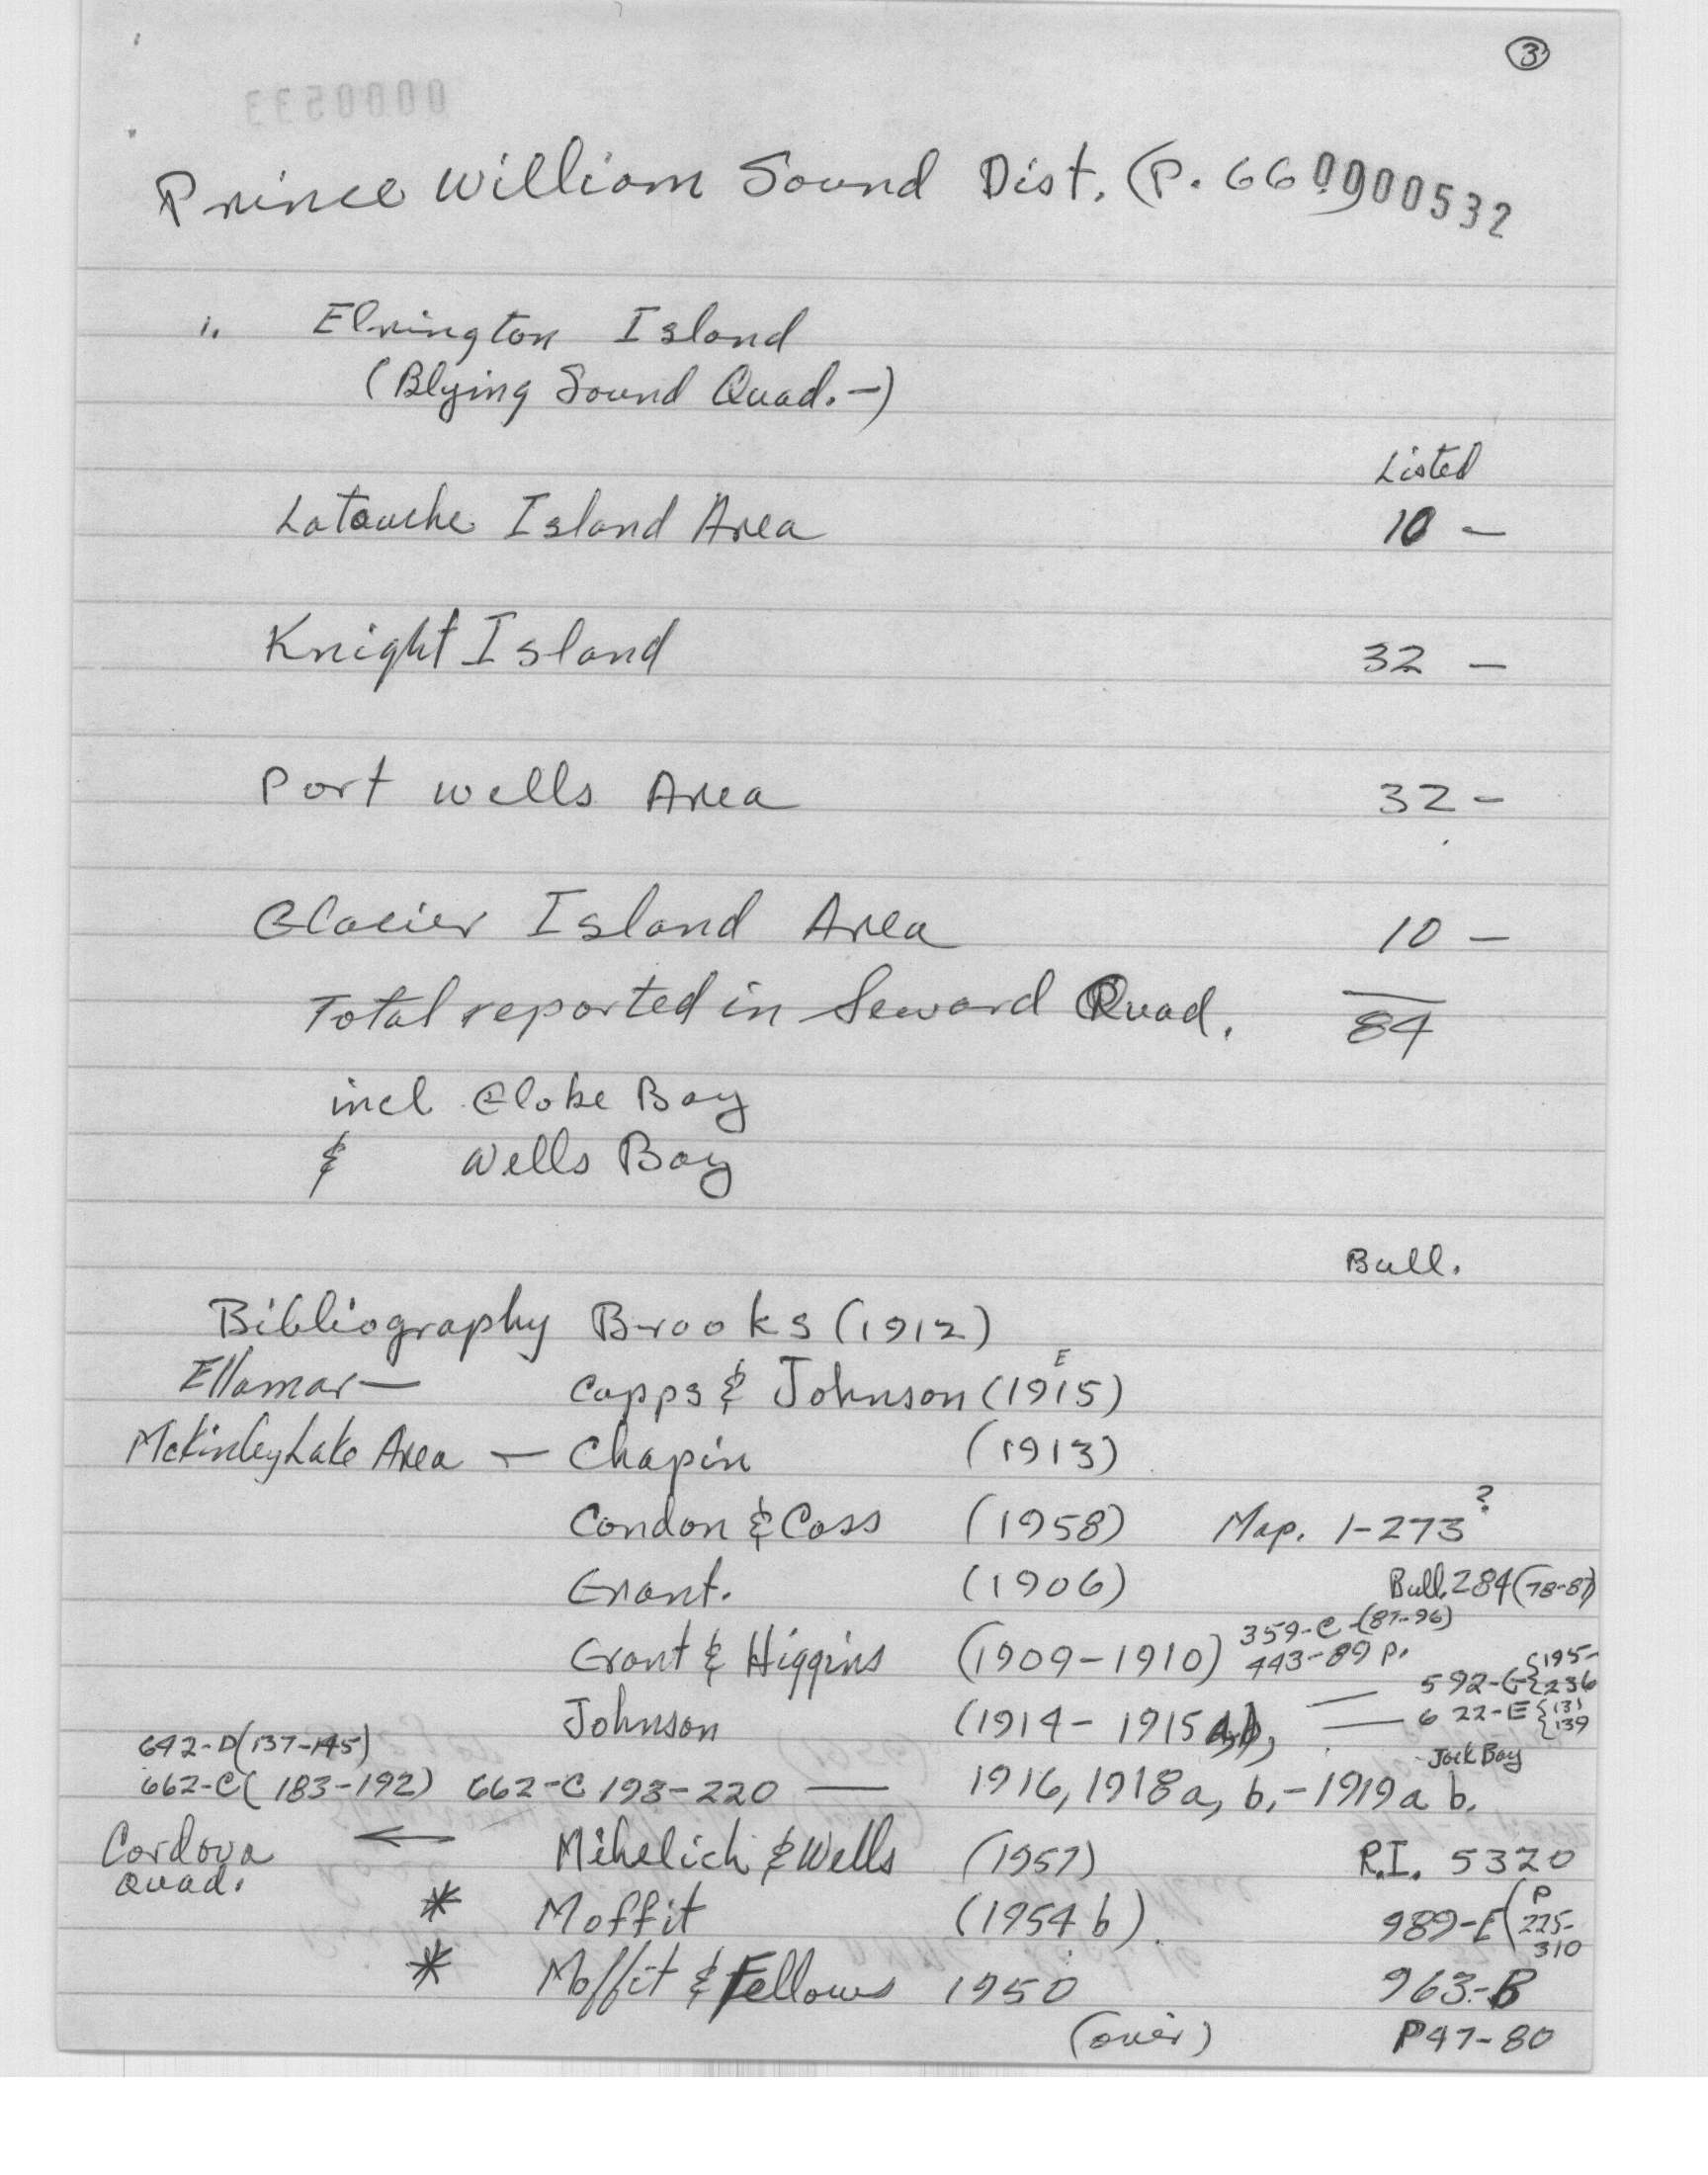 3
0000533
Prince William Sound Dist. (P. 66
0000532
1. Elrington Island
(Blying Sound Quad.-)
Listed
Latouche Island Area 10 —
Knight Island 32 —
Port Wells Area 32 —
Glacier Island Area 10 —
Total reported in Seward Quad. 84
incl Globe Bay
& Wells Bay
Bull.
Bibliography Brooks (1912)
Ellamar — Capps & Johnson (1915) E
McKinley Lake Area — Chapin (1913)
Condon & Cass (1958) Map. 1-273 ?
Grant. (1906) Bull. 284 (78-87)
Grant & Higgins (1909-1910) 359-C-(87-96)
443-89 p.
Johnson (1914 - 1915 a,b, — 592-G {195-236
— 622-E {131 139
642-D(137-145) Jack Bay
662-C (183-192) 662-C 193-220 — 1916, 1918a, b,-1919a b.
Cordova Quad. ← Mihelich & Wells (1957) R.I. 5320
* Moffit (1954 b). 989-E (P 225-310
* Moffit & Fellows 1950 963-B
(over) P47-80